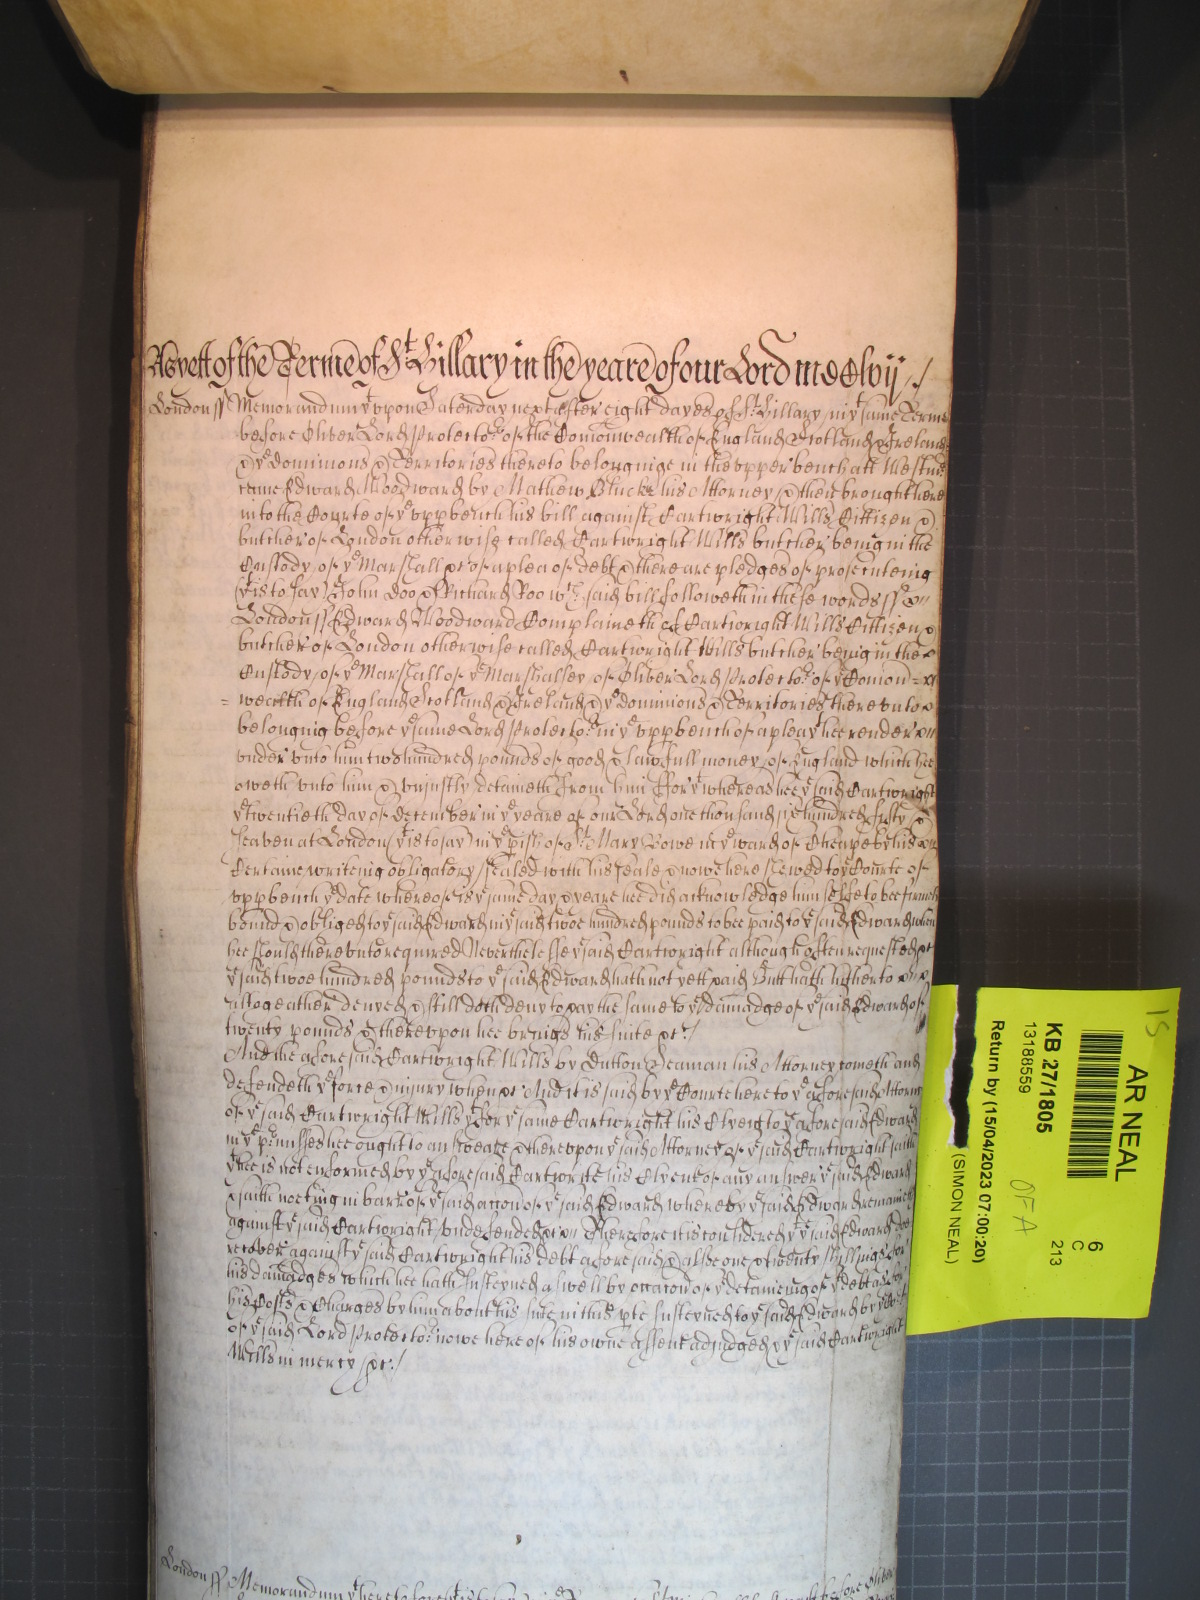 As yett of the Terme of St. Hillary in the yeare of our Lord mdclvij ./
London ss Memorandum yt upon Saterday next after eight dayes of St. Hillary in ye same Terme
before Oliver Lord Protector of the Comonwealth of England Scotland & Ireland
& ye dominions & Territories thereto belonginge in the upper bench att Westmr
came Edward Woodward by Mathew Bluck his Attorney & then brought here
into the Courte of ye uppbench his bill against Cartwright Mills Cittizen &
butcher of London otherwise called Cartwright Mills butcher being in the
Custody of ye Marshall &c of a plea of debt & there are pledges of prosecuteing
(yt is to say) John Doo & Richard Roo wch said bill followeth in these words ss
London ss Edward Woodward Complaineth of Cartwright Mills Cittizen &
butcher of London otherwise called Cartwright Mills butcher being in the
Custody of ye Marshall of ye Marshalsey of Oliver Lord Protector of ye Comon=
=wealth of England Scotland & Ireland & ye dominions & Territories thereunto
belonging before ye same Lord Protector in ye uppbench of a plea yt hee render
under unto him two hundred pounds of good & lawfull money of England which hee
oweth unto him & unjustly detaineth from him ffor yt whereas hee ye said Cartwright
ye twentieth day of december in ye yeare of our Lord one thousand six hundred fifty &
seaven at London (yt is to say) in ye pish of St. Mary Bowe in ye ward of Cheape by his
Certaine writeing obligatory sealed with his seale & nowe here shewed to ye Courte of
uppbench ye date whereof is ye same day & yeare hee did acknowledge himselfe to bee firmely
bound & obliged to ye said Edward in ye said twoe hundred pounds to bee paid to ye said Edward when
hee should thereunto required Neverthelesse ye said Cartwright although often requested &c
ye said twoe hundred pounds to ye said Edward hath not yett paid Butt hath hitherto
altogeather denyed & still doth deny to pay the same to ye damadge of ye said Edward of
twenty pounds & thereupon hee brings his suite &c ./
And the aforesaid Cartwright Mills by Dutton Seaman his Attorney cometh and
defendeth ye force & injury when &c And it is said by ye Courte here to ye aforesaid Attorny
of ye said Cartwright Mills yt for ye same Cartwright his Clyent to ye aforesaid Edward
in ye prmisses hee ought to answeare & thereupon ye said Attorney of ye said Cartwright saith
yt hee is not enformed by ye aforesaid Cartwrite his Clyent of any answer to ye said Edward
& saith nothing in barr of ye said accon of ye said Edward whereby ye said Edward remaineth
against ye said Cartwright undefended &c Therefore it is considered yt ye said Edward doe
recover against ye said Cartwright his debt aforesaid & alsoe one & twenty shillings for
his damadges which hee hath susteyned aswell by occacon of ye detaineing of ye debt aforesd
his Costs & Charges by him about his suite in this pte susteyned to ye said Edward by ye Court
of ye said Lord Protector nowe here of his owne assent adjudged & ye said Cartwright
Mills in mercy &c ./
London ss Memorandum yt heretofore yt is to say before Oliver
15
AR NEAL
KB 27/1805
13188559
Return by (15/04/2023 07:00:20)
(SIMON NEAL)
OFA
6
C
213